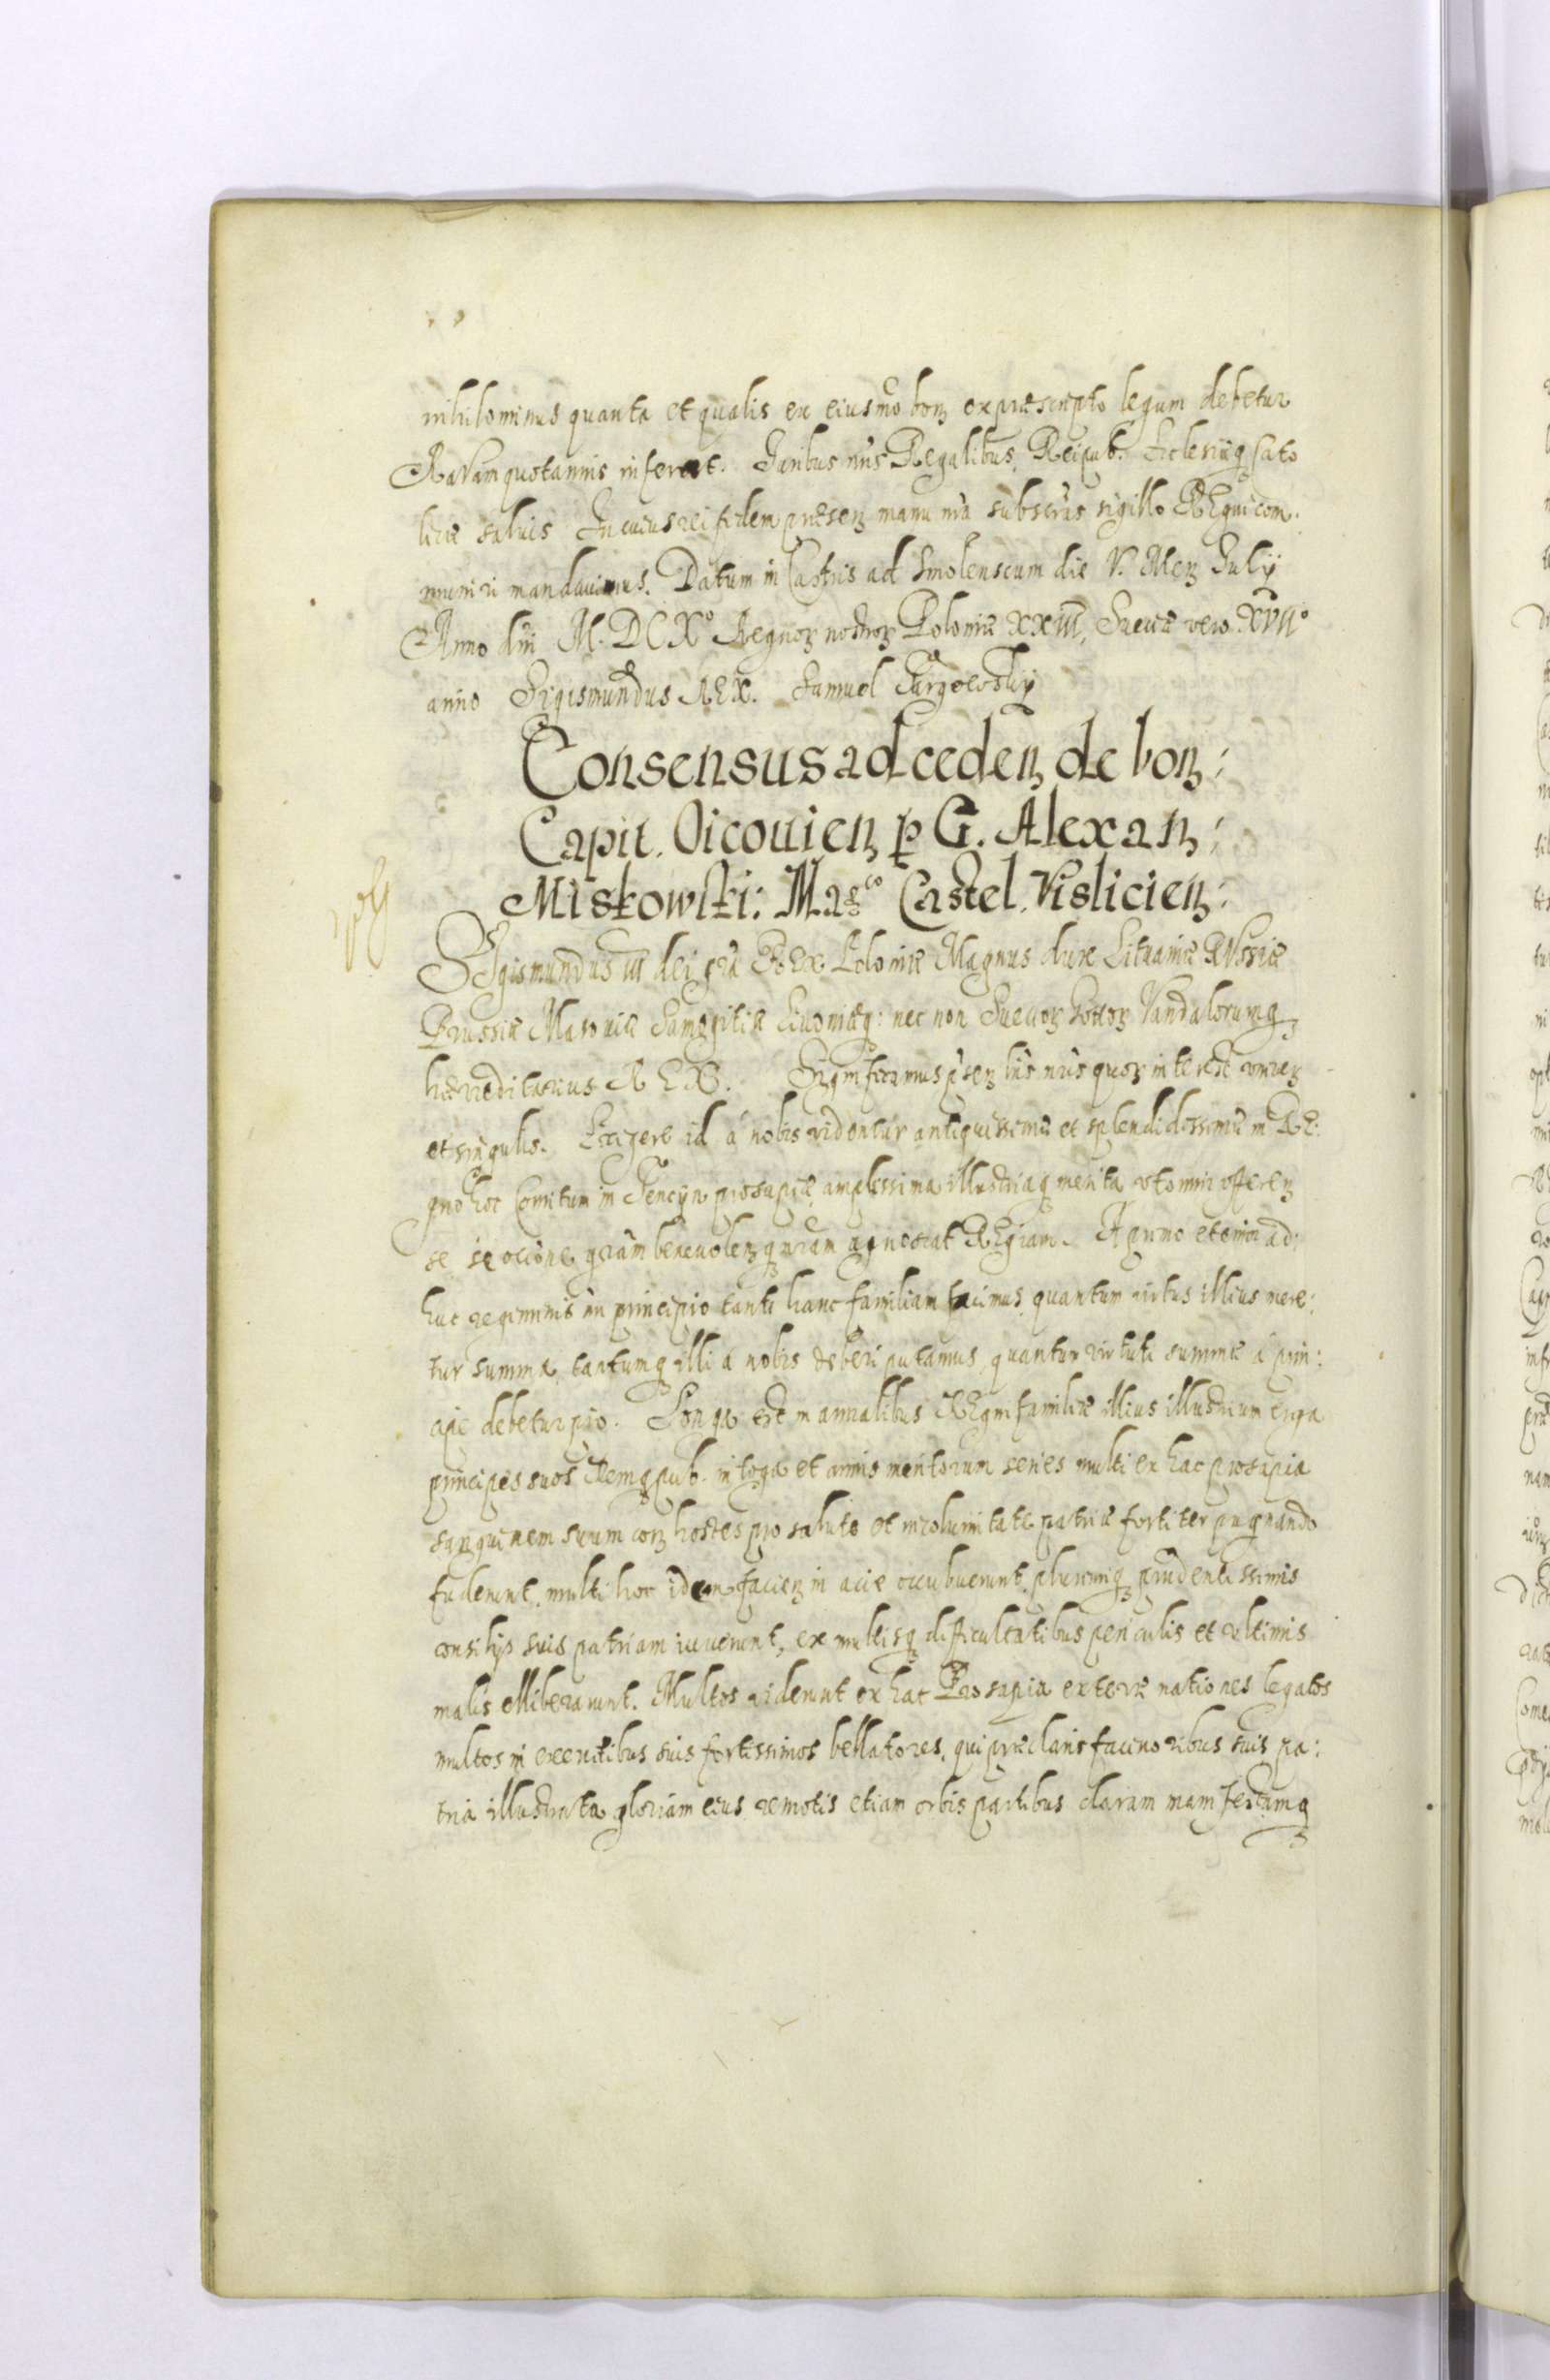 nihilominus quanta et qualis ex eiusmo bonꝫ ex præscripto legum debetur
Ravam quotannis inferet. Juribus nris Regalibus, Reipub. Ecclesiæqꝫ Cato
licæ salvis In cuius rei fidem præsenꝫ manu nra subscrās sigillo REgni com.
muniri mandavimus. Datum in Castris ad Smolenscum die V. Menꝫ Julij
Anno dni M.DCXº Regnoꝝ nostroꝝ Poloniæ XXIII, Sueciæ vero XVIIº
anno Sigismundus REX. Samuel Targowsky
Consensus ad cedenꝫ de bonꝫ:
Capit. Oicouienꝫ ꝑ G. Alexanꝫ:
Miskowski: Magco Castel. Vislicienꝫ:
SIgismundus III dei gra REX Poloniæ Magnus dux Lituaniæ RVssiæ
Prussiæ Masouiæ Samogitiæ Liuoniæqꝫ: nec non Sueuoꝝ Gottoꝝ Vandalorumqꝫ
hæreditarius REX. Significamus pñsenꝫ lris nris quoꝝ interest vniueꝝ
et singulis. Exigere id á nobis videntur antiquissimæ et splendidissimæ in RE:
gno hoc Comitum in Tencyn prosapiæ amplissima illustriaqꝫ merita vt omni offerenꝫ
se se occione graam beneuolenꝫqꝫ nram agnoscat REgiam. A primo etenim ad:
huc regiminis nri principio tanti hanc familiam facimus, quantum virtus illius mere:
tur summa, tantumqꝫ illi á nobis deberi putamus, quantum virtuti summæ á prin:
cipe debetur pio. Longa est in annalibus REgni familiæ illius illustrium erga
principes suos Remqꝫ pub. in toga et armis meritorum series multi ex hac prosapia
sanguinem suum conꝫ hostes pro salute et incolumitate patriæ fortiter pugnando
fuderunt, multi hoc idem facienꝫ in acie occubuerunt, plurimiqꝫ prudentissimis
consilijs suis patriam iuuerunt, ex multisqꝫ difficultatibus periculis et vltimis
malis elliberarunt. Multos viderunt ex hac Prosapia exteræ nationes legatos
multos in exercitibus suis fortissimos bellatores, qui præclaris facinoribus suis pa:
tria illustrata gloriam eius remotis etiam orbis partibus claram manifestamqꝫ